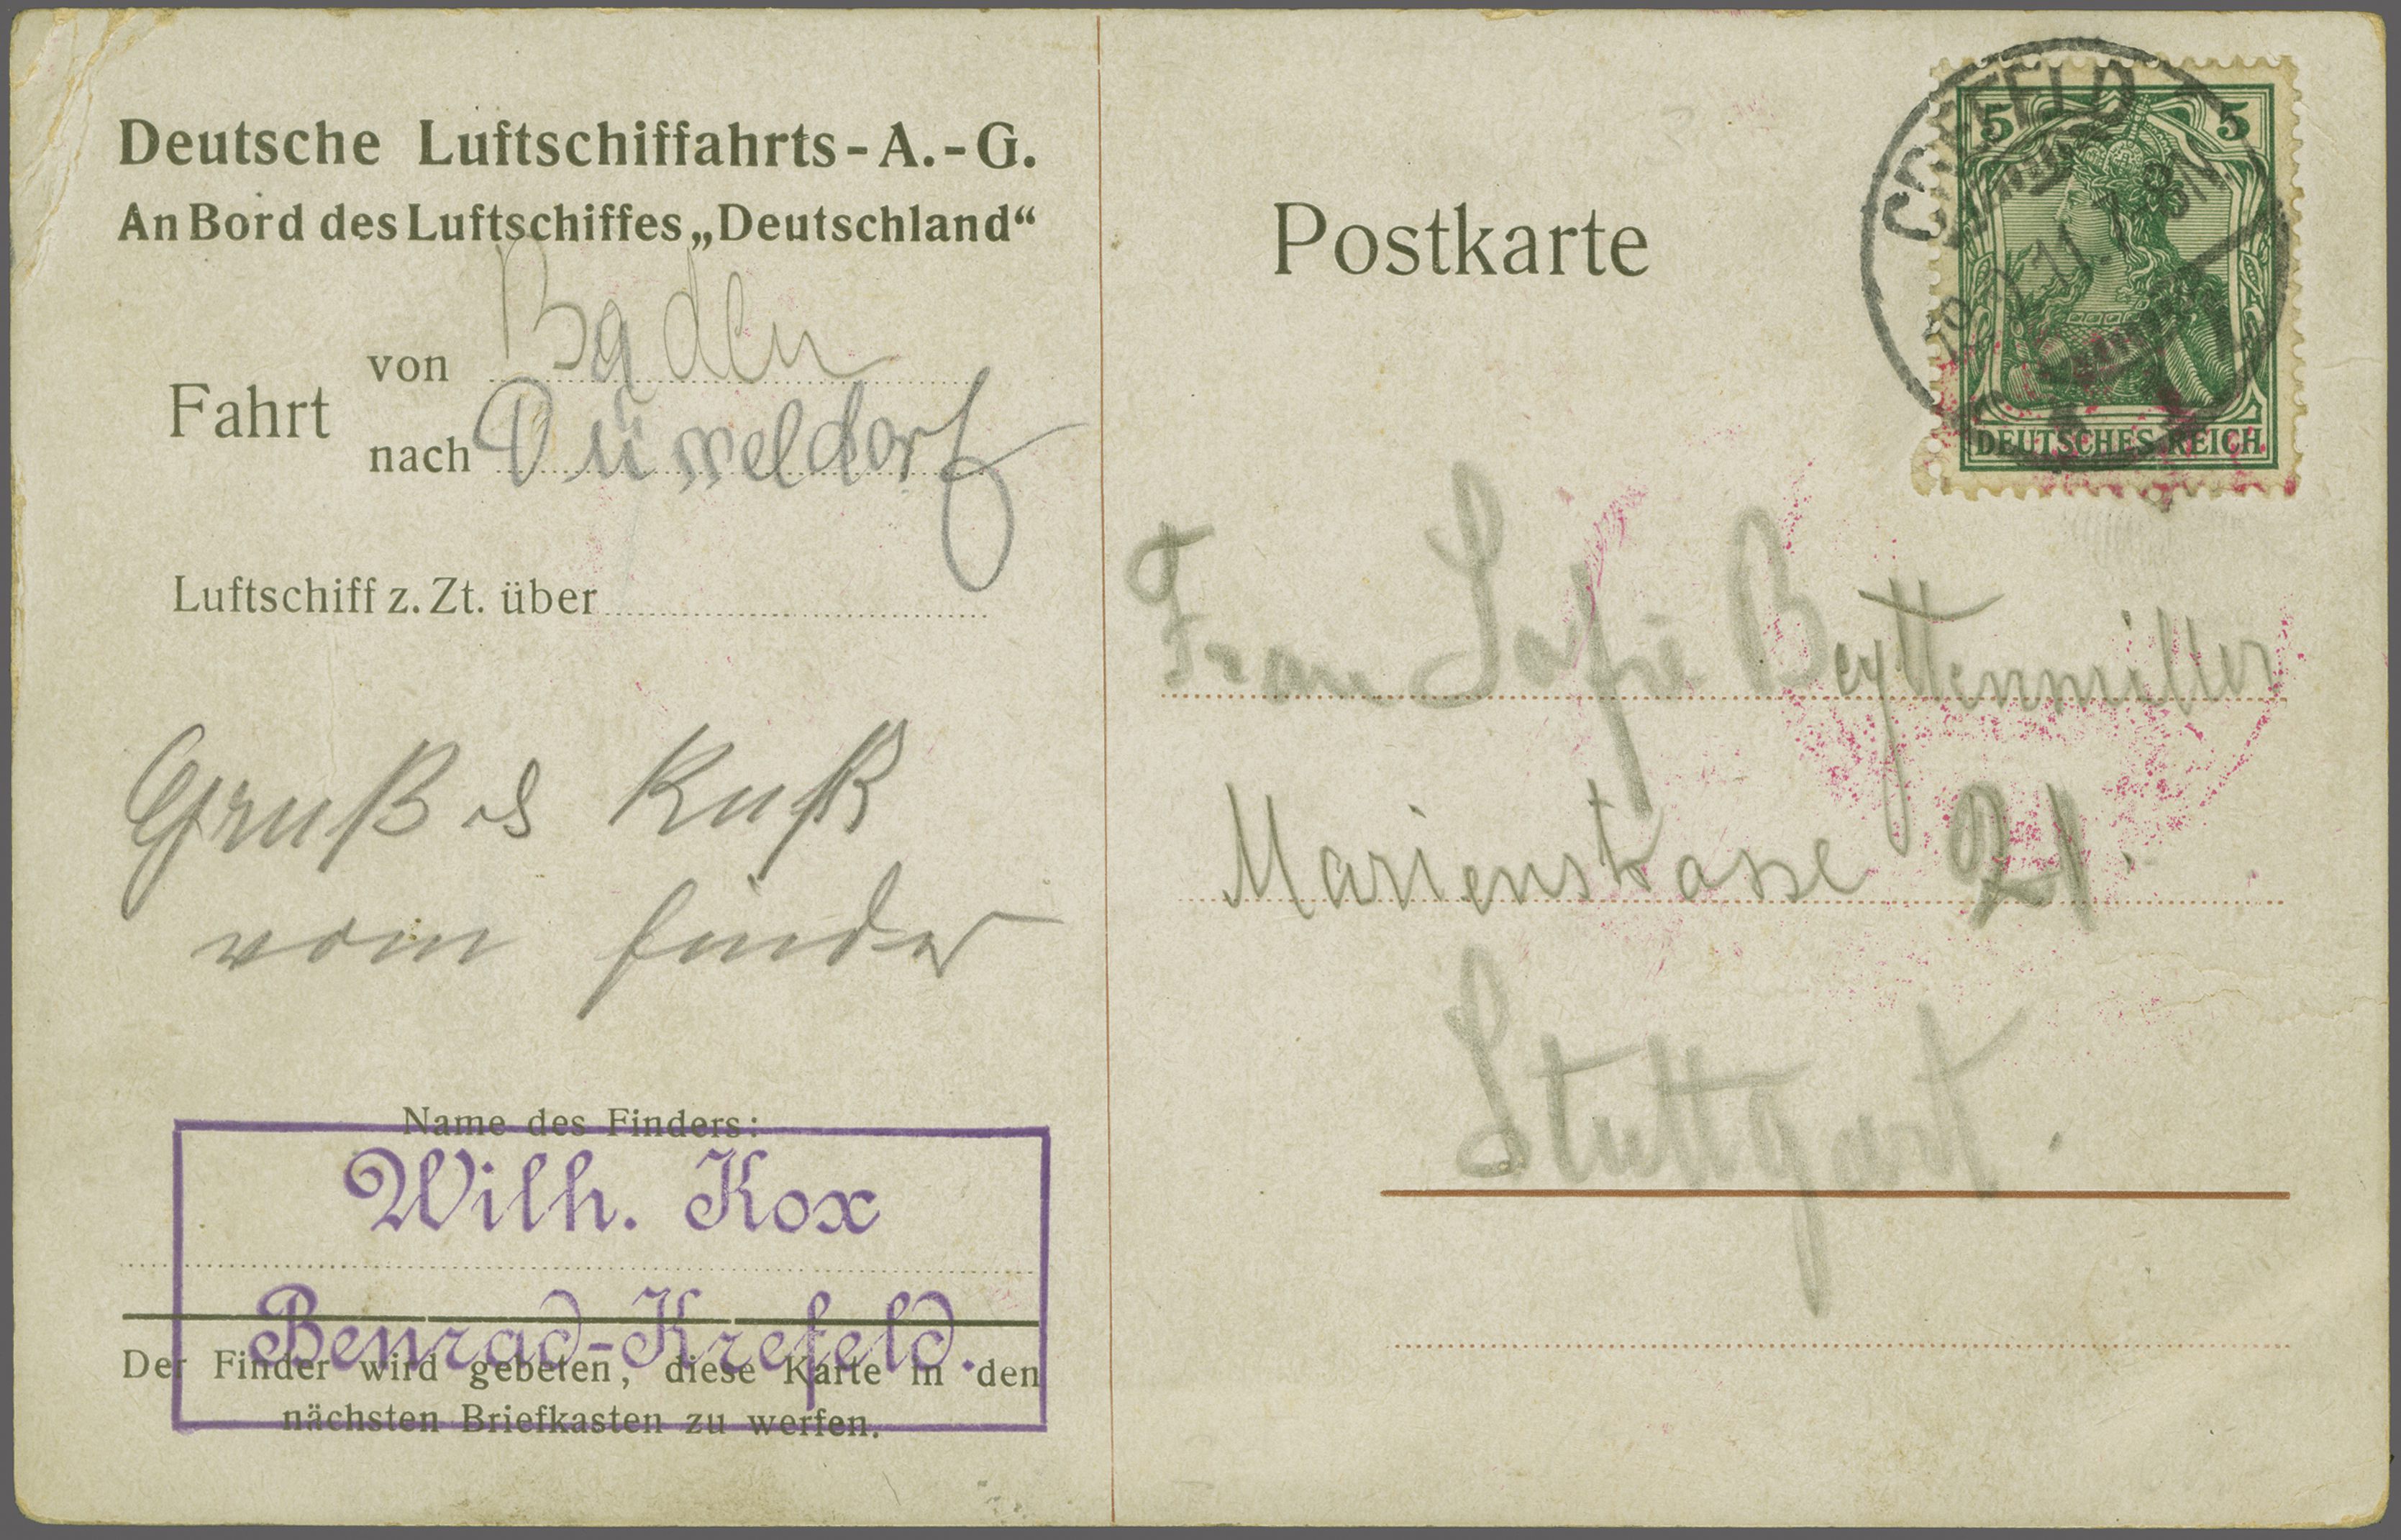 Deutsche Luftschiffahrts-A.-G.
An Bord des Luftschiffes „Deutschland“
Fahrt
von Baden
nach Düsseldorf
Luftschiff z. Zt. über
Gruß & Kuß
vom finder
Name des Finders:
Wilh. Kox
Benrad-Krefeld.
Der Finder wird gebeten, diese Karte in den
nächsten Briefkasten zu werfen.
Postkarte
CREFELD
5 5
DEUTSCHES REICH
Frau Sofie Beyttenmiller
Marienstrasse 21.
Stuttgart.